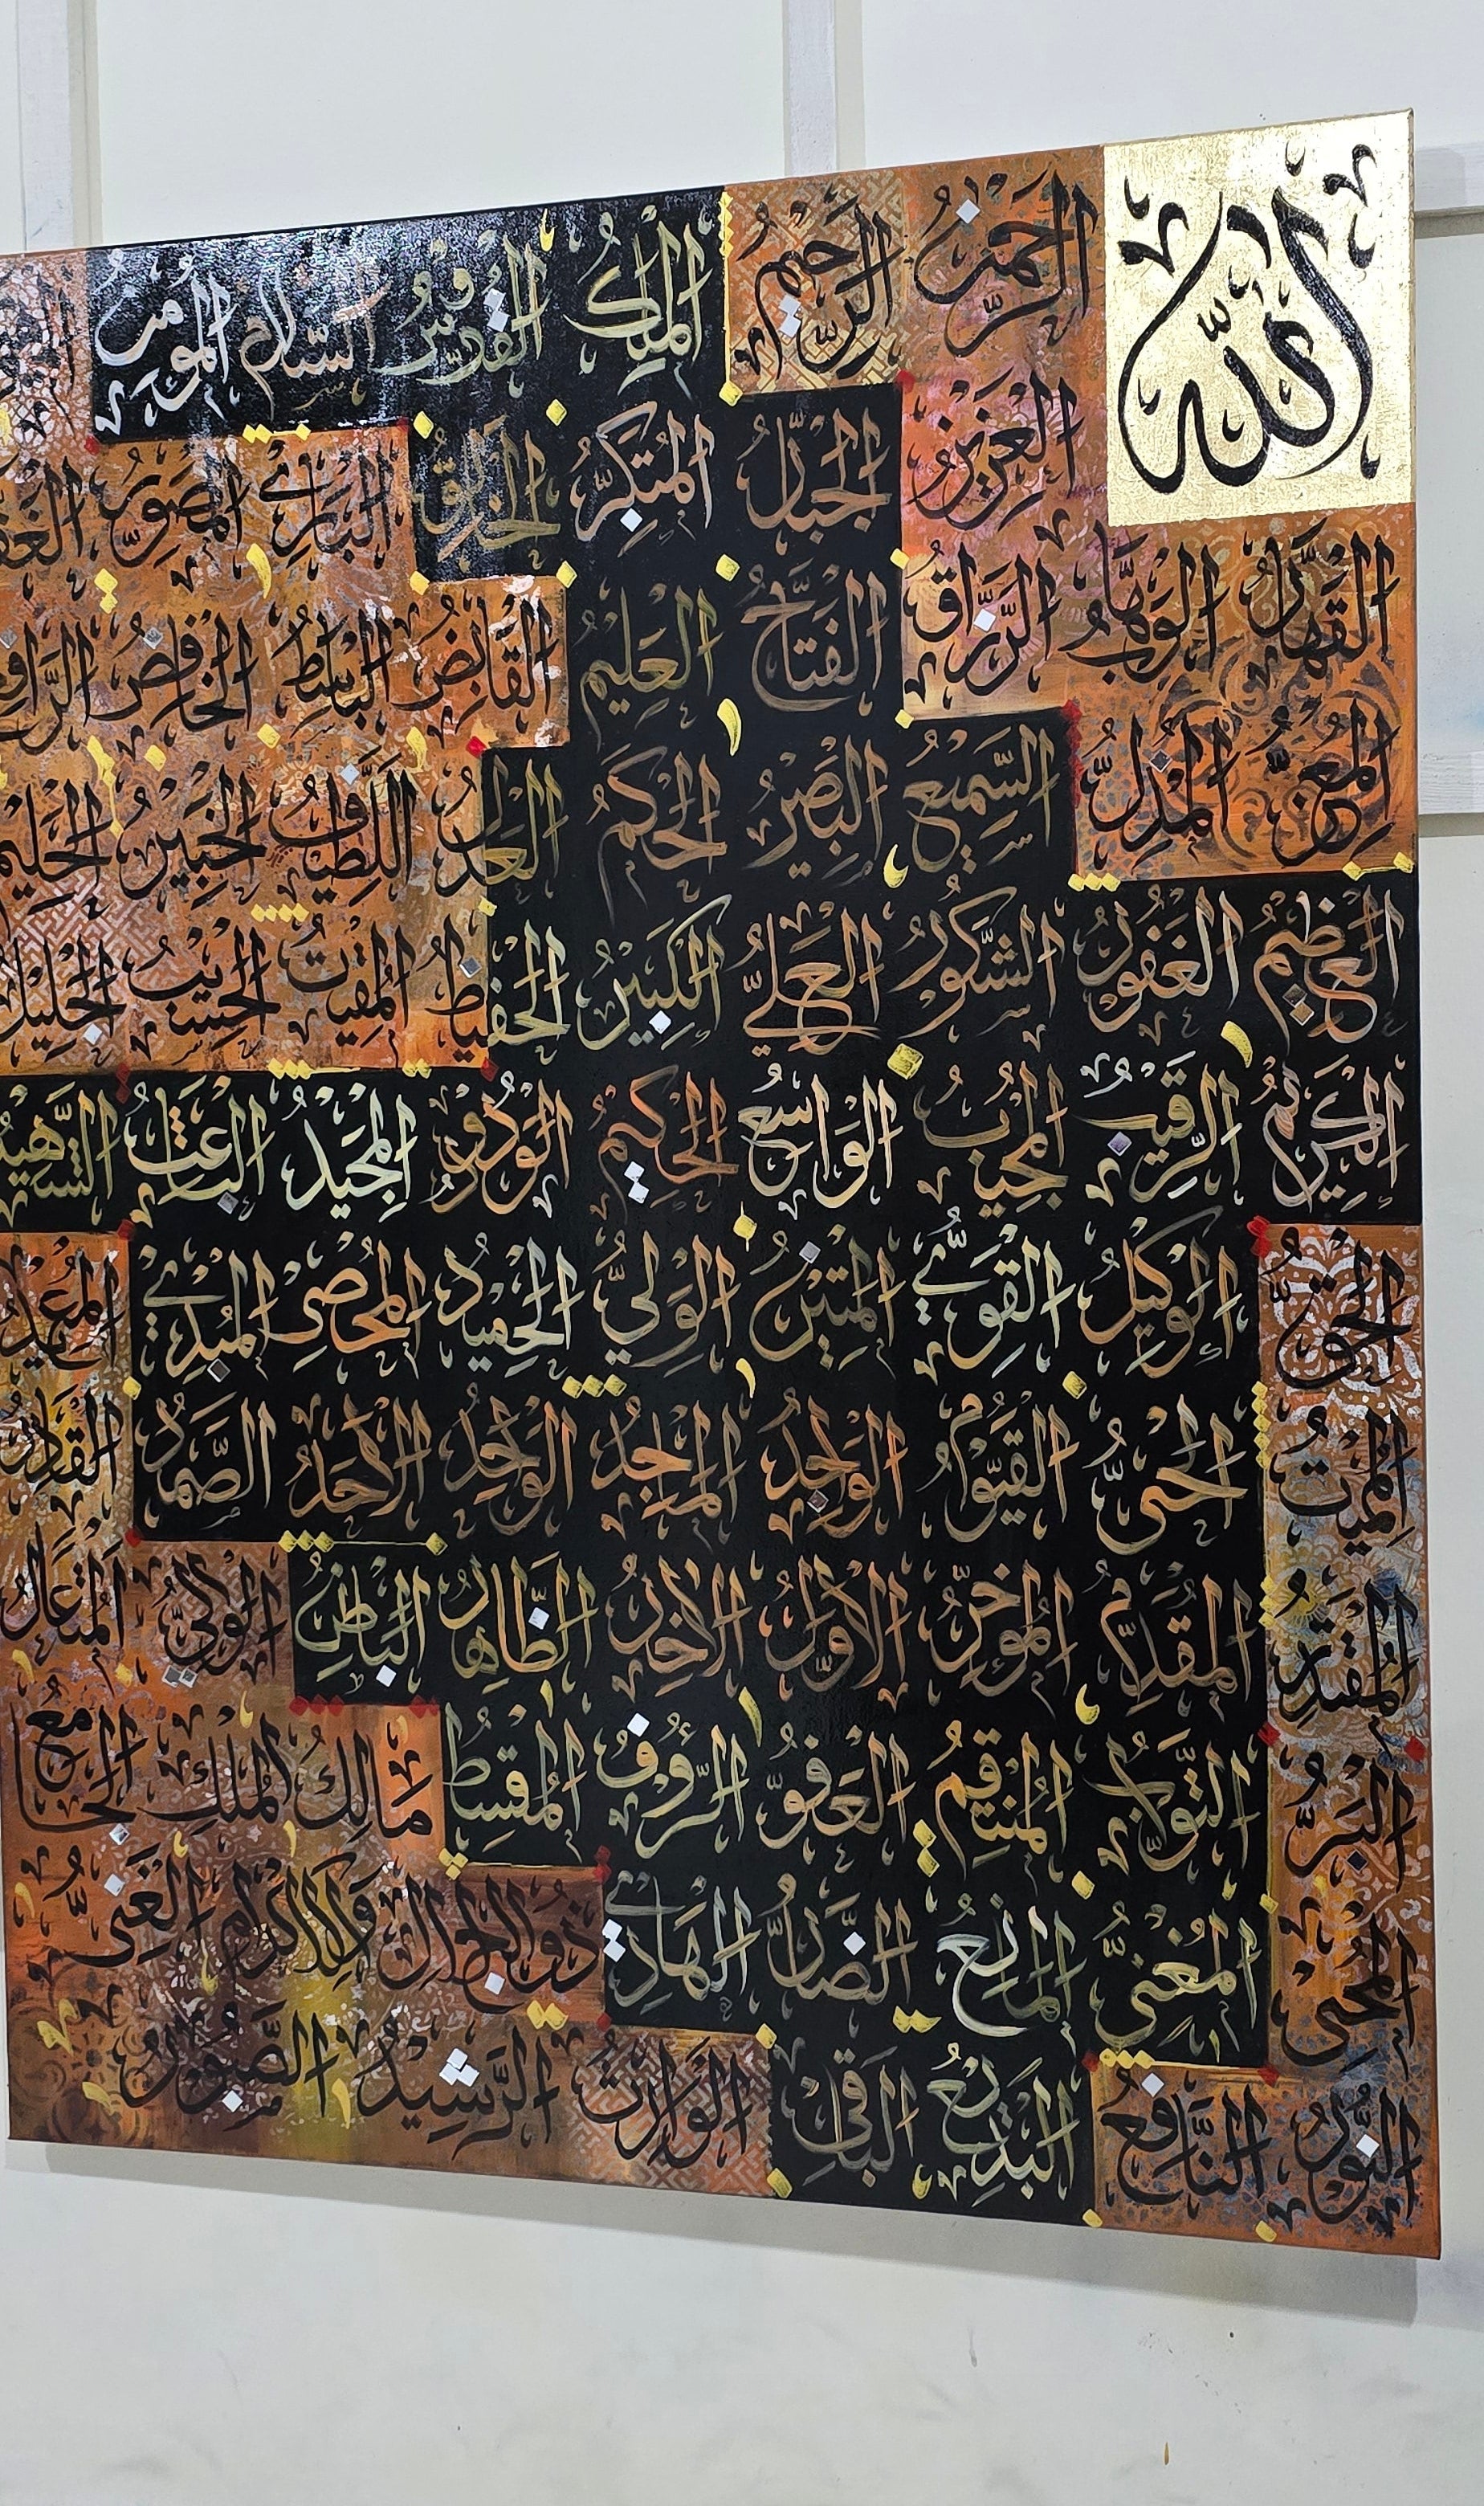 الله
الرحمن الرحيم الملك القدوس السلام المؤمن
العزيز الجبار المتكبر الخالق البارئ المصور
القهار الوهاب الرزاق الفتاح العليم القابض الباسط الخافض
المعز المذل السميع البصير الحكم العدل اللطيف الخبير الحليم
العظيم الغفور الشكور العلي الكبير الحفيظ المقيت الحسيب الجليل
الكريم الرقيب المجيب الواسع الحكيم الودود المجيد الباعث الشهيد
الحق الوكيل القوي المتين الولي الحميد المحصي المبدئ المعيد
المميت الحي القيوم الواجد الماجد الواحد الأحد الصمد القادر
المقتدر المقدم المؤخر الأول الآخر الظاهر الباطن الوالي المتعال
البر التواب المنتقم العفو الرؤوف المقسط مالك الملك الجامع
المحيي المغني المانع الضار الهادي ذو الجلال والإكرام الغني
النور النافع البديع الباقي الوارث الرشيد الصبور